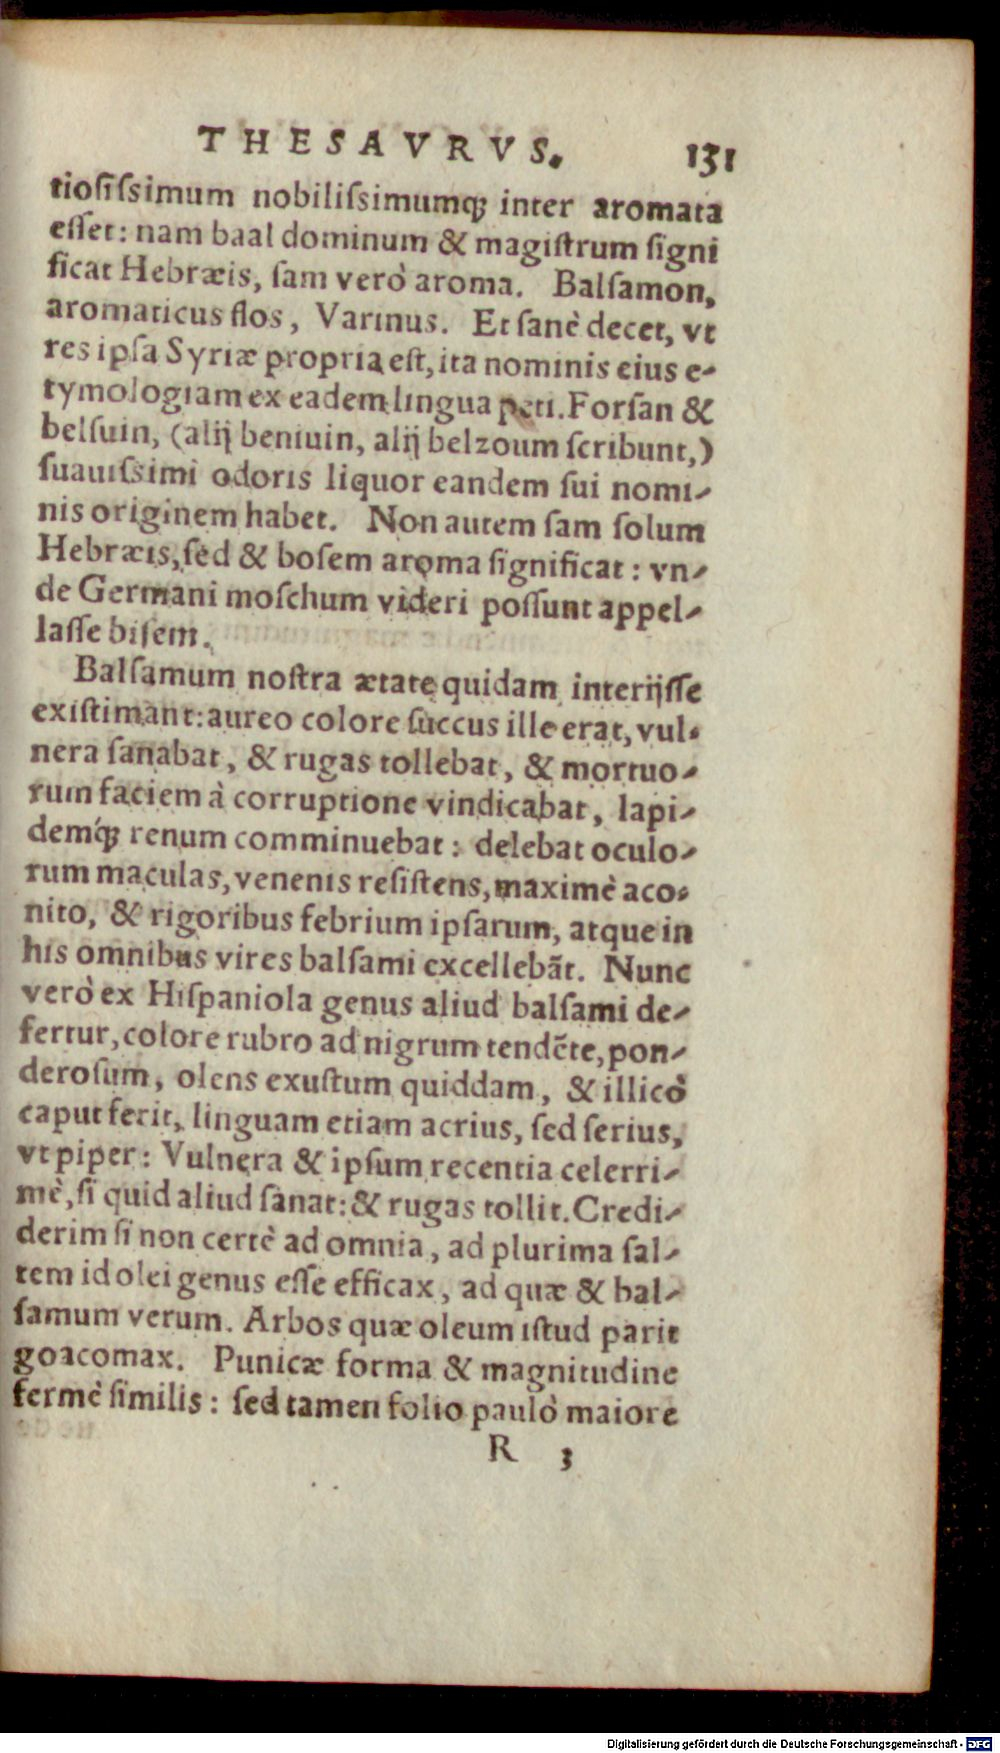 THESAVRVS. 131
tiosiſsimum nobiliſsimumq́; inter aromata
eſſet: nam baal dominum & magiſtrum ſigni
ficat Hebræis, ſam verò aroma. Balſamon,
aromaticus flos, Varinus. Et ſanè decet, vt
res ipſa Syriæ propria eſt, ita nominis eius e-
tymologiam ex eadem lingua peti. Forſan &
belſuin, (alij beniuin, alij belzoum ſcribunt,)
ſuauiſsimi odoris liquor eandem ſui nomi-
nis originem habet. Non autem ſam ſolum
Hebræis, ſed & boſem aroma ſignificat: vn-
de Germani moſchum videri poſſunt appel-
laſſe biſem.
Balſamum noſtra ætate quidam interijſſe
exiſtimant: aureo colore ſuccus ille erat, vul-
nera ſanabat, & rugas tollebat, & mortuo-
rum faciem à corruptione vindicabat, lapi-
demq́; renum comminuebat: delebat oculo-
rum maculas, venenis reſiſtens, maximè aco-
nito, & rigoribus febrium ipſarum, atque in
his omnibus vires balſami excellebãt. Nunc
verò ex Hiſpaniola genus aliud balſami de-
fertur, colore rubro ad nigrum tendẽte, pon-
deroſum, olens exuſtum quiddam, & illicò
caput ferit, linguam etiam acrius, ſed ſerius,
vt piper: Vulnera & ipſum recentia celerri-
mè, ſi quid aliud ſanat: & rugas tollit. Credi-
derim ſi non certè ad omnia, ad plurima ſal-
tem id olei genus eſſe efficax, ad quæ & bal-
ſamum verum. Arbos quæ oleum iſtud parit
goacomax. Punicæ forma & magnitudine
fermè ſimilis: ſed tamen folio paulò maiore
R 3
Digitalisierung gefördert durch die Deutsche Forschungsgemeinschaft - DFG